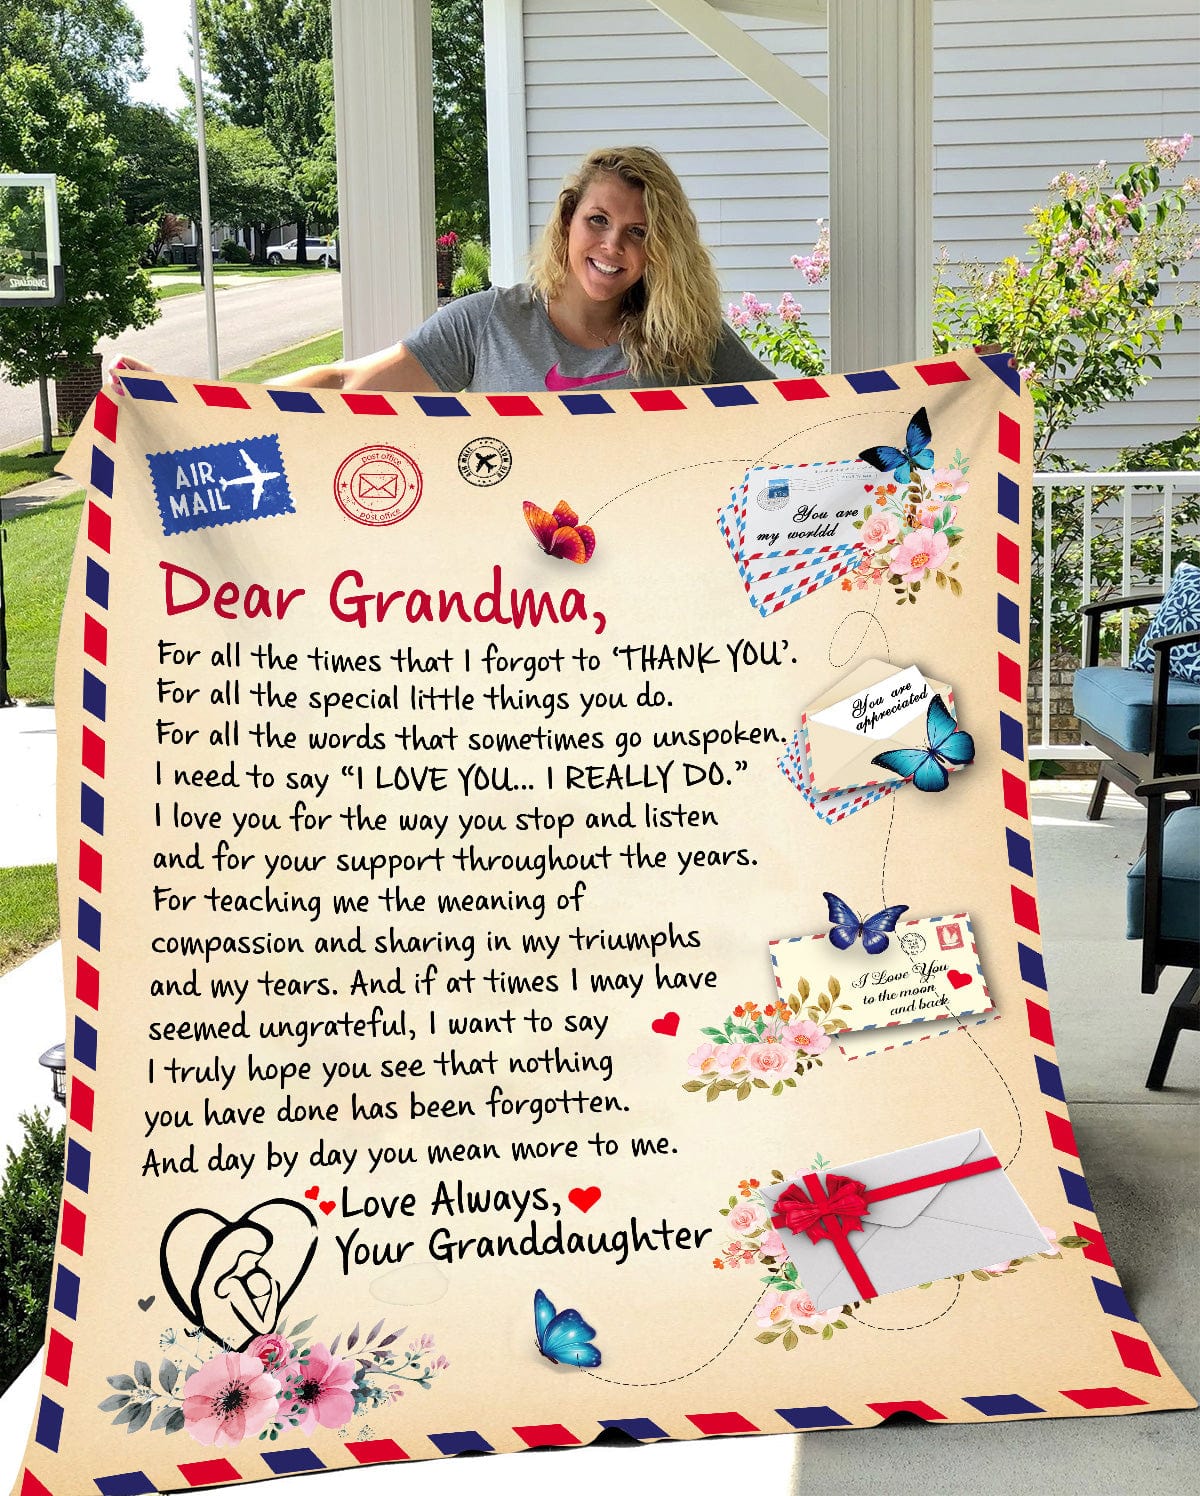 SPALDING
AIR
MAIL
post office
post office
AIR MAIL
You are
my worldd
Dear Grandma,
For all the times that I forgot to ‘THANK YOU’.
For all the special little things you do.
For all the words that sometimes go unspoken.
I need to say “I LOVE YOU... I REALLY DO.”
I love you for the way you stop and listen
and for your support throughout the years.
For teaching me the meaning of
compassion and sharing in my triumphs
and my tears. And if at times I may have
seemed ungrateful, I want to say
I truly hope you see that nothing
you have done has been forgotten.
And day by day you mean more to me.
Love Always,
Your Granddaughter
You are
appreciated
I Love You
to the moon
and back